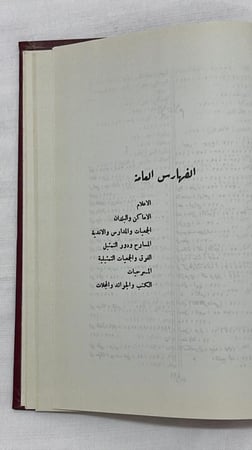 الفهارس العامة
الاعلام
الاماكن والبلدان
الجمعيات والمدارس والاندية
المسارح ودور التمثيل
الفرق والجمعيات التمثيلية
المسرحيات
الكتب والجرائد والمجلات